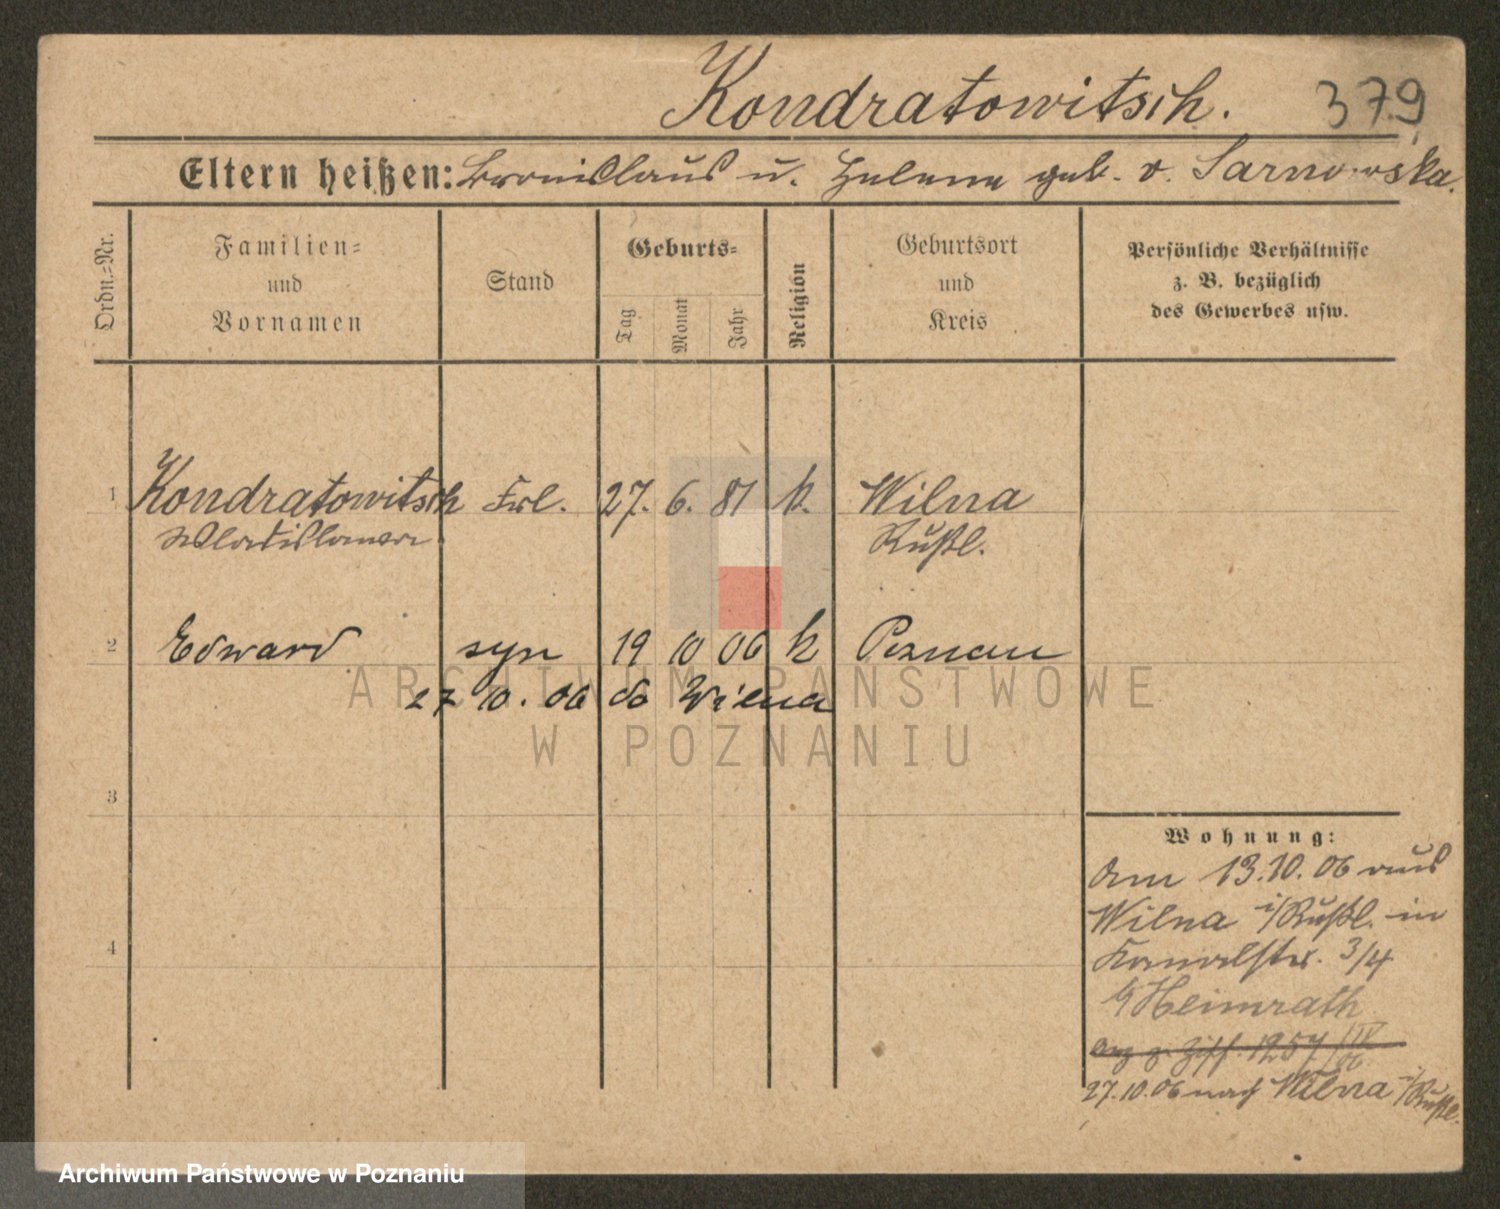 Kondratowitsch.
379
Eltern heißen: Bronislaus u. Helene geb. v. Sarnowska.
Ordn.=Nr.
Familien=
und
Vornamen
Stand
Geburts=
Tag
Monat
Jahr
Religion
Geburtsort
und
Kreis
Persönliche Verhältnisse
z. B. bezüglich
des Gewerbes usw.
1 Kondratowitsch Frl. 27. 6. 81 k. Wilna
Wladislawa Rußl.
2 Edward syn 19 10 06 k Poznan
27 10. 06 do Wilna
3
4
Wohnung:
Am 13.10.06 aus
Wilna i/Rußl. in
Kanalstr. 3/4
b/Heimrath
Anz z. Ziff. 1257/IV 06
27.10.06 nach Wilna i/Rußl.
ARCHIWUM PAŃSTWOWE
W POZNANIU
Archiwum Państwowe w Poznaniu